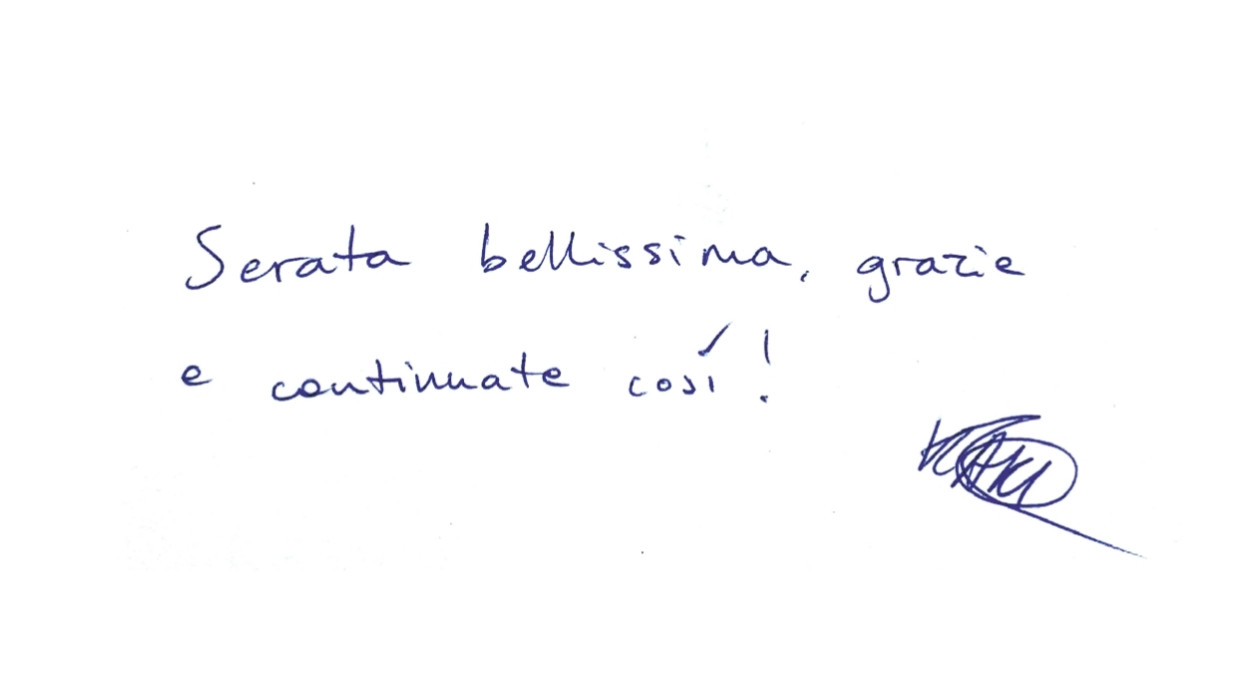 Serata bellissima, grazie
e continuate così!